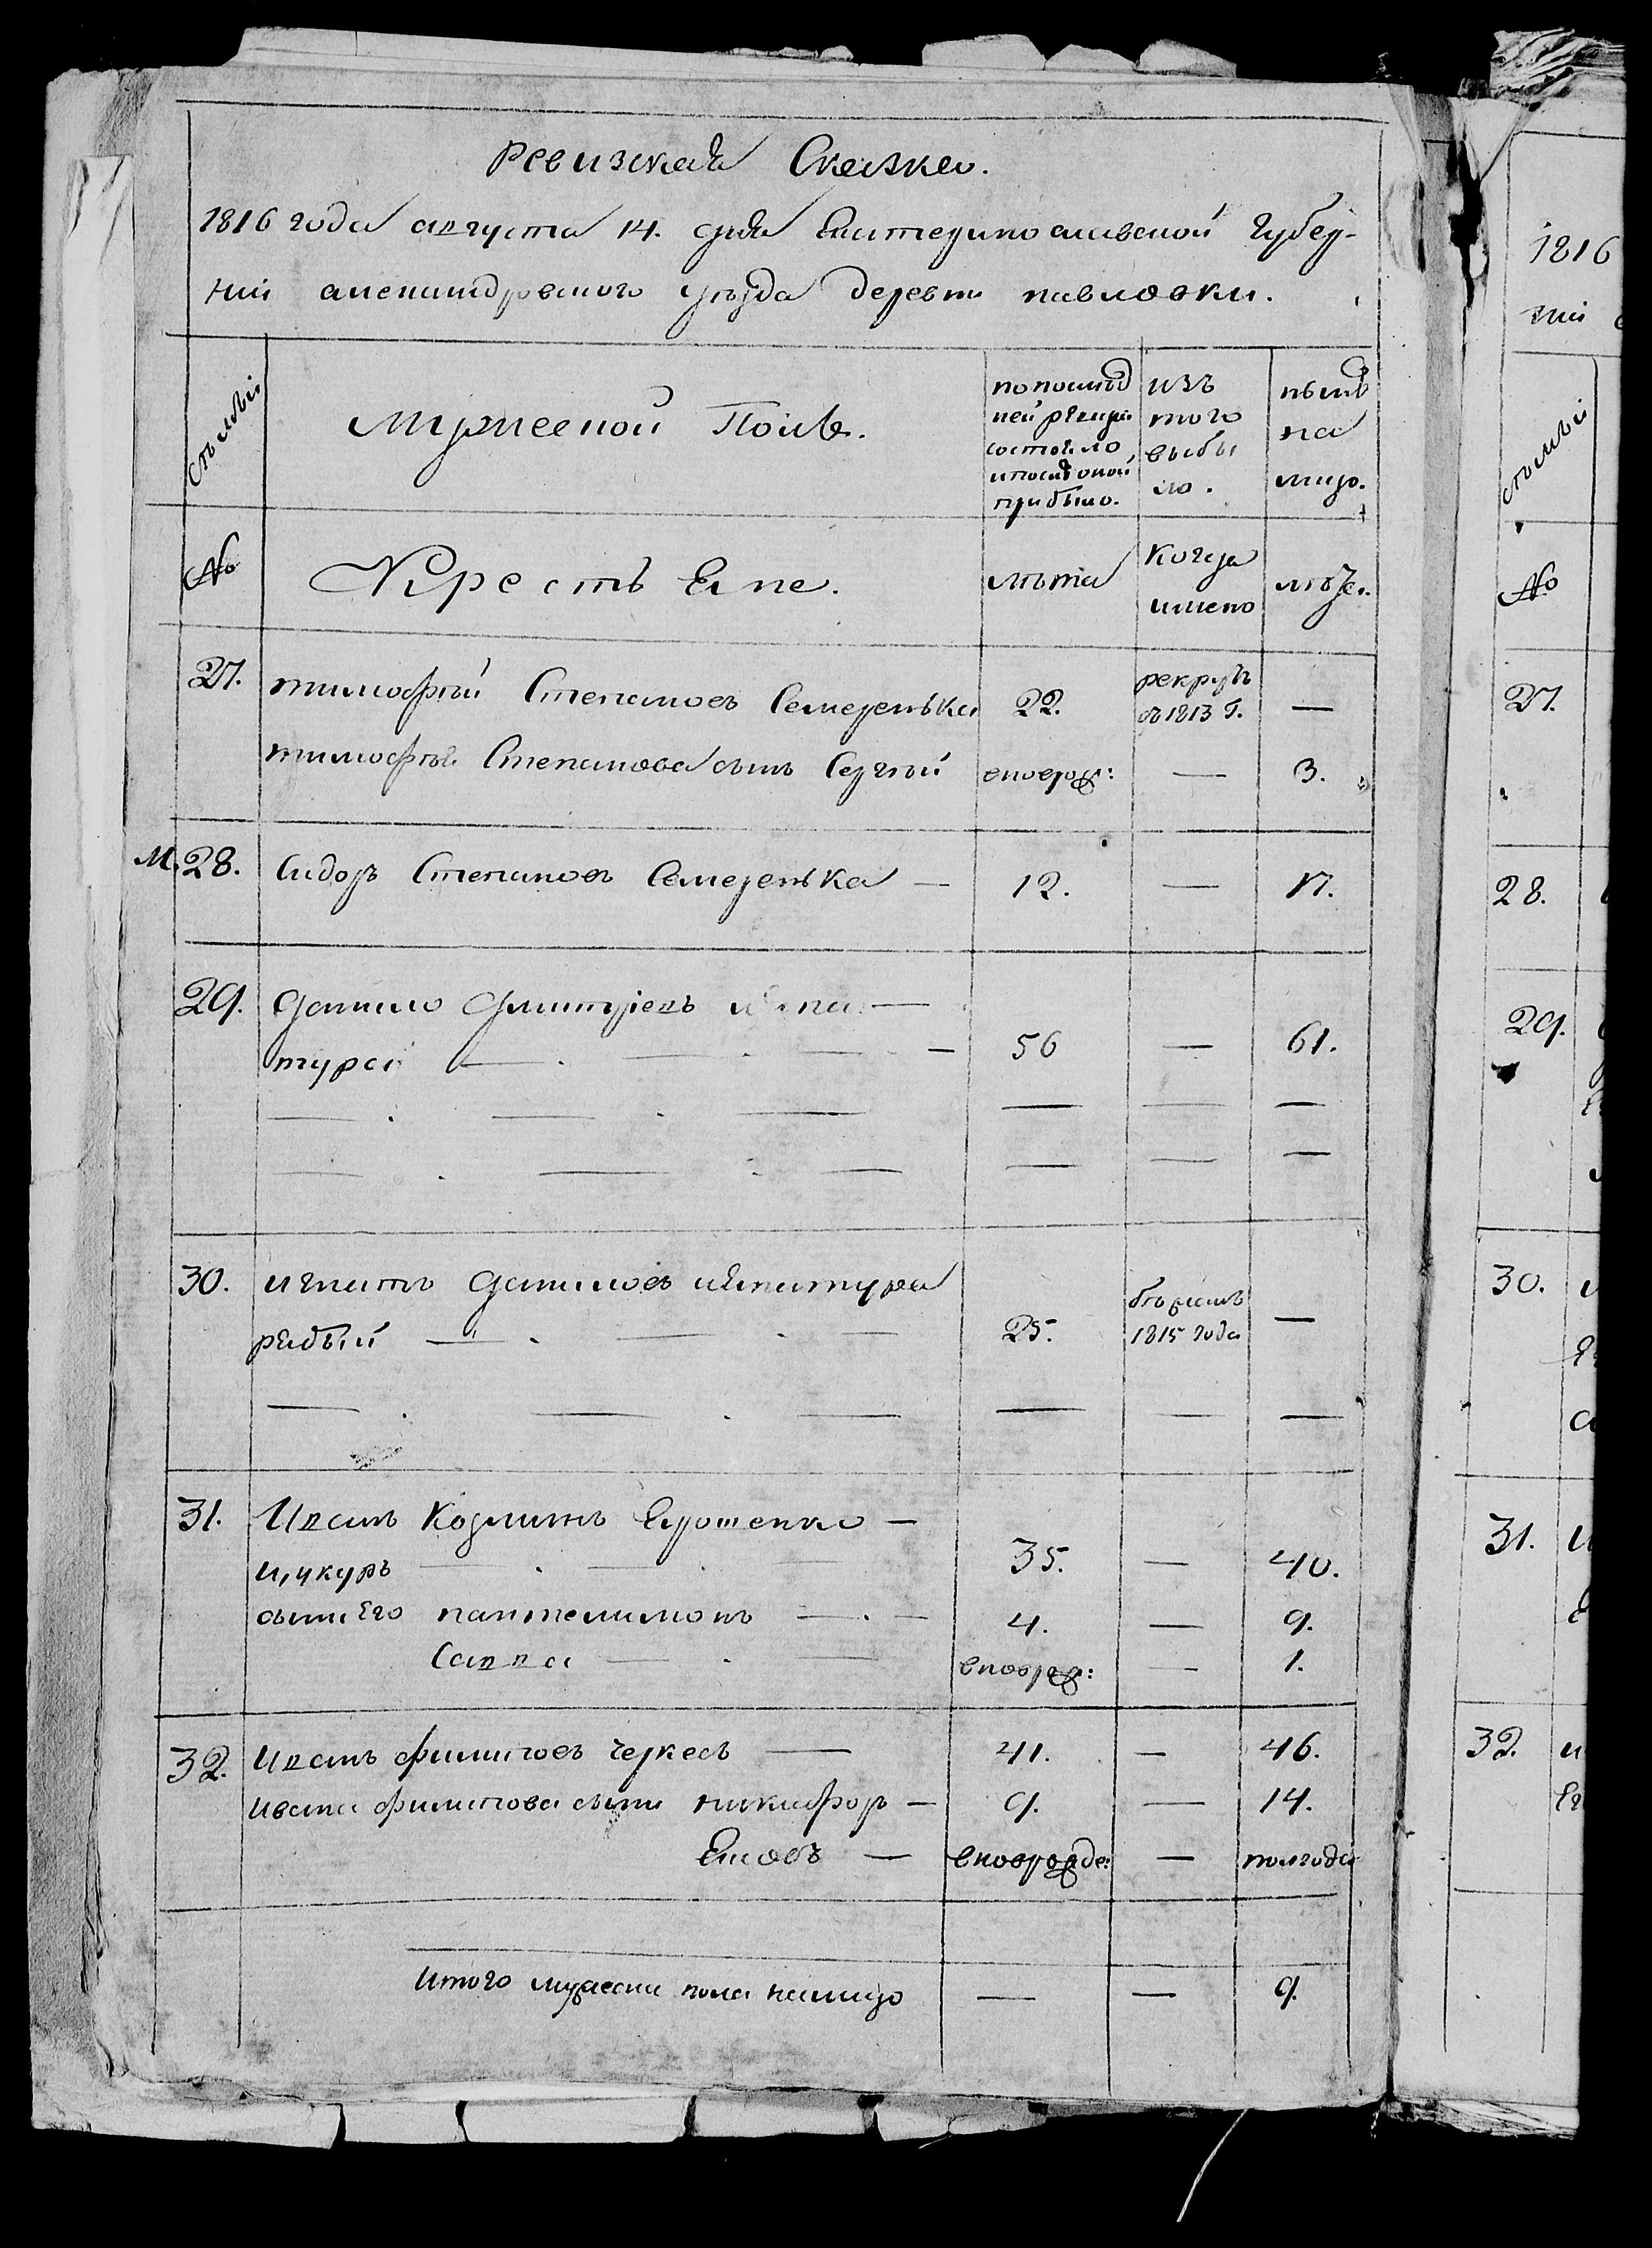 Ревизская Сказка.
1816 года августа 14. дня Екатеринославской губер-
ніи александровского уѣзда деревни павловки.
семьи
мужеской Полъ.
попослѣд
ней ревизіи
состояло
ипослѣ оной
прибыло.
изъ
того
выбы
ло.
нынѣ
на
лицо.
№
Крестьяне.
лѣта
когда
имено
лѣта.
27.
тимофей Степановъ Семеренька
22.
рекрутъ
въ 1813 г.
—
тимофея Степанова сынъ Сергѣй
вноворож:
—
3.
М. 28.
Сидоръ Степановъ Семеренька —
12.
—
17.
29.
Данило Дмитріевъ
тура
56
—
61.
30.
игнатъ Даниловъ
рябый
25.
бѣжалъ
1815 года
—
31.
Иванъ Козминъ Ерошенко —
ичкуръ
35.
—
40.
сыни Его пантелимонъ
4.
—
9.
Савва
вноворож:
—
1.
32.
Иванъ филиповъ Черкесъ —
41.
—
46.
ивана филипова сыни никифоръ —
9.
—
14.
Яковъ —
вноворожде:
—
полгода
Итого мужеска пола налицо
—
—
9.
1816
ніи
семьи
№
27.
28.
29.
30.
31.
32.